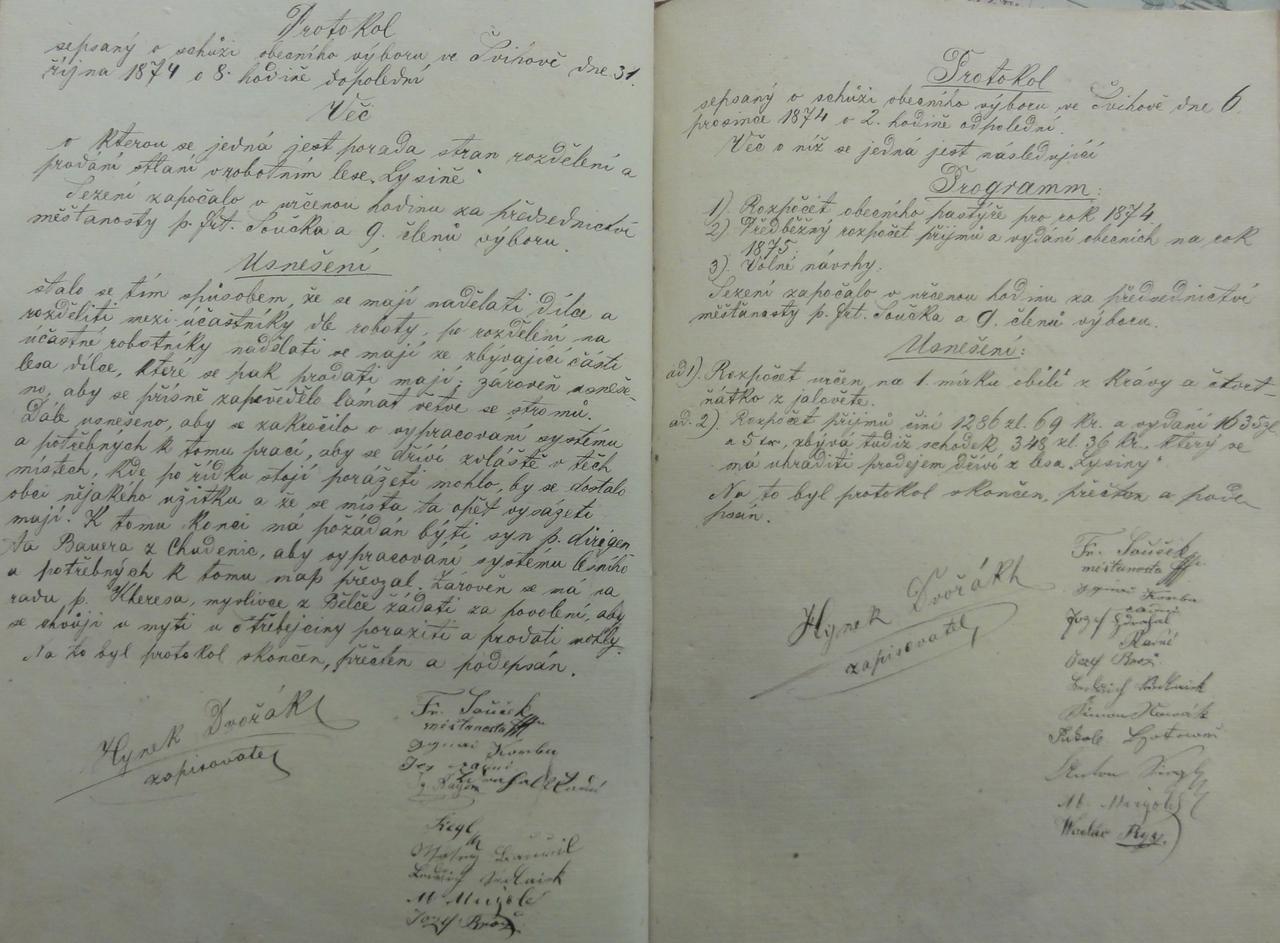 Protokol
sepsaný o schůzi obecního výboru ve Švihově dne 31.
října 1874 o 8. hodině dopolední
Věc
o kterou se jedná jest porada stran rozdělení a
prodání stlaní v robotním lese „Lysině“
Sezení započalo o určenou hodinu za předsednictví
měšťanosty p. Frt. Součka a 9. členů výboru.
Usnešení
stalo se tím způsobem, že se mají nadělati dílce a
rozděliti mezi účastníky dle roboty, po rozdělení na
účastné robotníky nadělati se mají ze zbývající části
lesa dílce, které se pak prodati mají; zároveň usneše-
no, aby se přísně zapovědělo lámat větve se stromů.
Dále usnešeno, aby se zakročilo o vypracování systému
a potřebných k tomu prací, aby se dříví zvláště v těch
místech, kde po řídku stojí porážeti mohlo, by se dostalo
obci nějakého užitku a že se místa ta opět vysázeti
mají. K tomu konci má požádán býti syn p. dirigen
ta Bauera z Chudenic, aby vypracování systému lesního
a potřebných k tomu map převzal. Zároveň se má za
radu p. Kheresa, myslivce z Bělče žádati za povolení, aby
se chvůji v mýti u Otřebejciny poraziti a prodati mohly.
Na to byl protokol skončen, přečten a podepsán.
Hynek Dvořák
zapisovatel
Fr. Souček
měšťanosta
Ignaz Komba
radní
Kegl
Ludvig Sedlaick
M.
Jozef Brož
Protokol
sepsaný o schůzi obecního výboru ve Švihově dne 6.
prosince 1874 o 2. hodině odpolední.
Věc o níž se jedna jest následující
Programm:
1). Rozpočet obecního pastýře pro rok 1874
2). Předběžný rozpočet příjmů a vydání obecních na rok
1875.
3). Volné návrhy.
Sezení započalo v určenou hodinu za předsednictví
měšťanosty p. Frt. Součka a 9. členů výboru.
Usnešení:
ad 1). Rozpočet určen na 1. mírku obilí z krávy a čtvrt-
ňátko z jalovête.
ad. 2). Rozpočet příjmů činí 1286 zl. 69 kr. a vydání 1635 zl
a 5 kr, zbývá tudíž schodek 348 zl. 36 kr. který se
má uhraditi prodejem dříví z lesa „Lysiny“
Na to byl protokol skončen, přečten a pode
psán.
Hynek Dvořák
zapisovatel
Fr. Souček
měšťanosta
Ignaz Komba
radní
Jozef
Radní
Jozef Brož
Ludvich Sedlaick
Šimon Nowák
Anton
M.
Wáclav